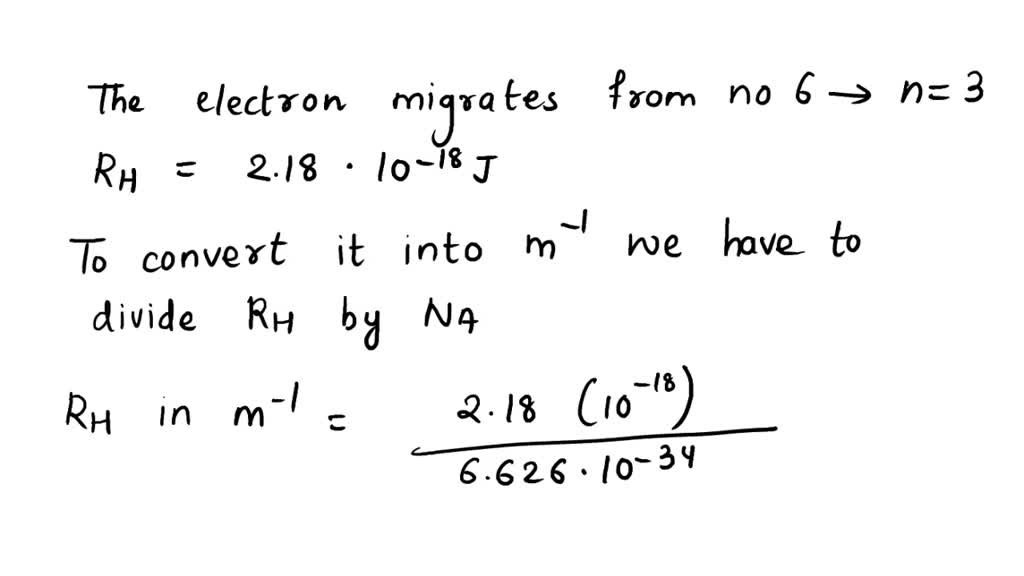 The electron migrates from no 6 → n = 3
RH = 2.18 · 10^-18 J
To convert it into m^-1 we have to
divide RH by NA
RH in m^-1 = 2.18 (10^-18)
6.626 · 10^-34